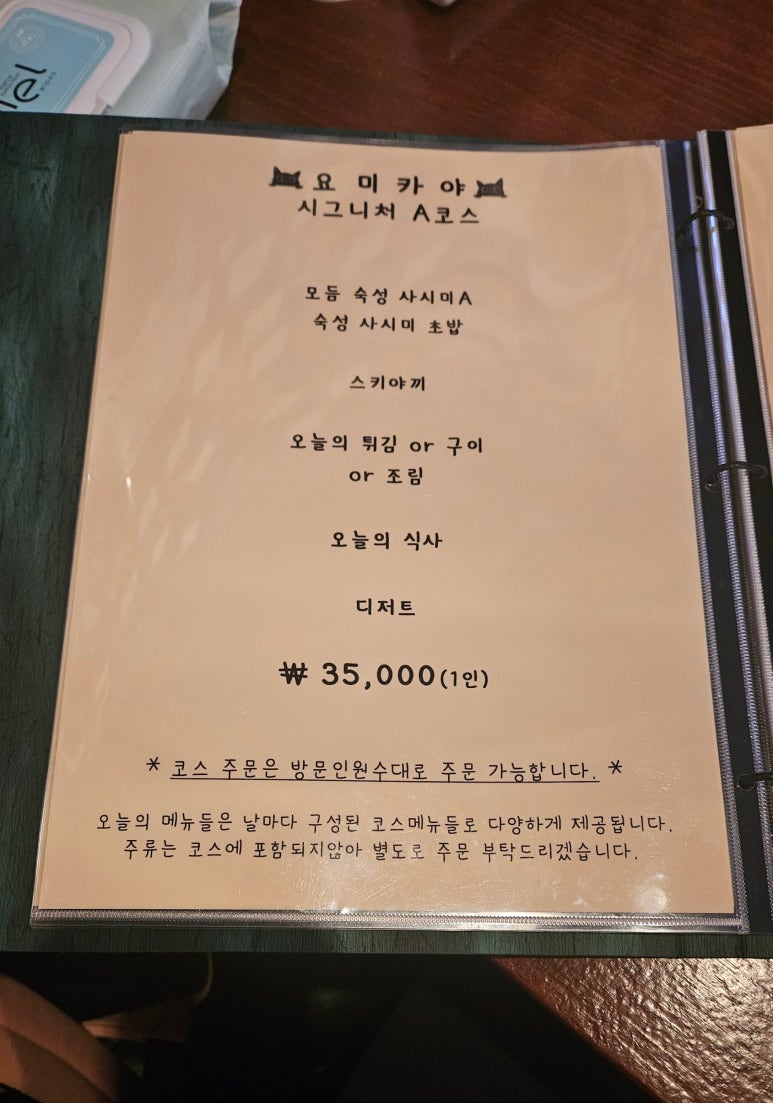 요미카야
시그니처 A코스
모듬 숙성 사시미A
숙성 사시미 초밥
스키야끼
오늘의 튀김 or 구이
or 조림
오늘의 식사
디저트
₩ 35,000(1인)
* 코스 주문은 방문인원수대로 주문 가능합니다. *
오늘의 메뉴들은 날마다 구성된 코스메뉴들로 다양하게 제공됩니다.
주류는 코스에 포함되지않아 별도로 주문 부탁드리겠습니다.